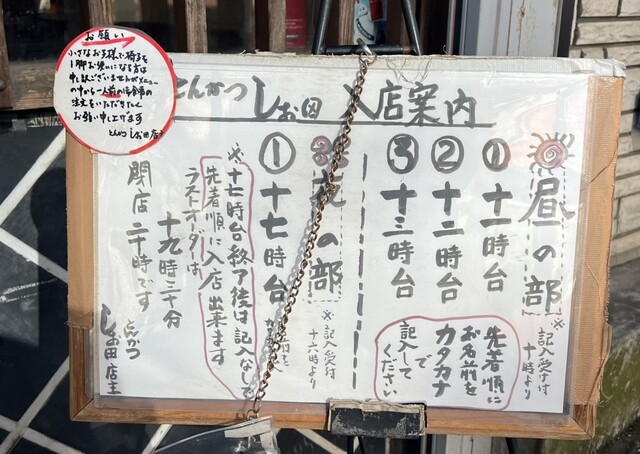 お願い
小さなお子様で椅子を
1脚お使いになる方は
申し訳ございませんがメニュー
の中から一人前のお食事の
ご注文をいただきたく
お願い申し上げます
とんかつ しお田店主
とんかつ しお田 入店案内
昼の部
※記入受付
十時より
① 十一時台
② 十二時台
③ 十三時台
先着順に
お名前を
カタカナ
で
記入して
ください
夜の部
※記入受付
十六時より
① 十七時台
※十七時台終了後は記入なしで
先着順に入店出来ます
ラストオーダーは
十九時二十分
閉店二十時です
とんかつ
しお田 店主